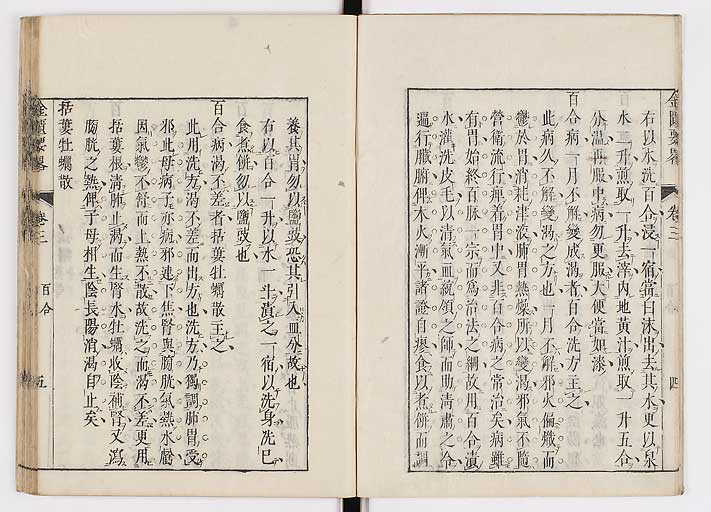 右以水洗百合浸一宿當白沫出去其水更以泉
水二升煎取一升去滓內地黃汁煎取一升五合
分溫再服中病勿更服大便當如漆
百合病一月不解變成渴者百合洗方主之
此病久不解變渴之方也一月不解邪火偏熾而
鬱於胃消耗津液肺胃熱燥所以變渴邪氣不隨
營衛流行痺着胃中又非百合病之常治矣病雖
有胃始終百脉一宗而為治法之綱故用百合漬
水灌洗皮毛以清氣血統領之師而助清肅之令
遍行臟腑俾木火漸平諸證自瘳食以煮餅而調
養其胃勿以鹽豉恐其引入血分故也
右以百合一升以水一斗漬之一宿以洗身洗已
食煮餅勿以鹽豉也
百合病渴不差者栝蔞牡蠣散主之
此用洗方渴不差而出方也洗方乃獨調肺胃受
邪此母病子亦病邪連下焦腎與膀胱氣熱水虧
因氣鬱不舒而上熱不散故洗之而渴不差更用
栝蔞根清肺止渴而生腎水牡蠣收陰補腎又瀉
膀胱之熱俾子母相生陰長陽消渴即止矣
栝蔞牡蠣散
金匱要畧
卷三
百合
四
金匱要畧
卷三
百合
五